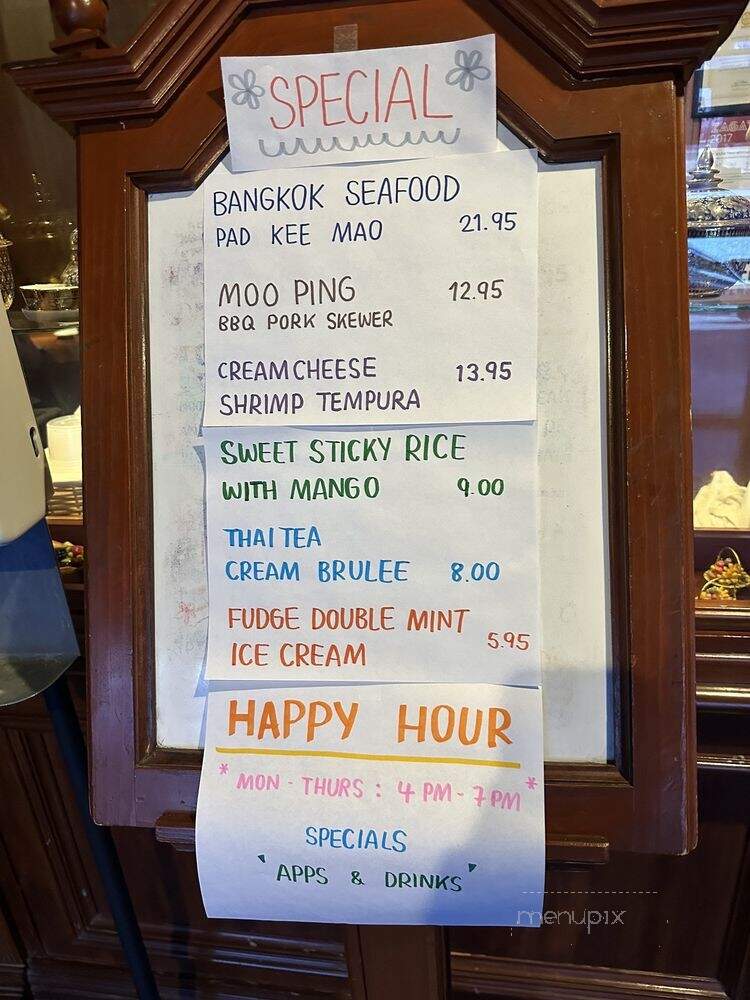 SPECIAL
BANGKOK SEAFOOD
PAD KEE MAO 21.95
MOO PING 12.95
BBQ PORK SKEWER
CREAMCHEESE 13.95
SHRIMP TEMPURA
SWEET STICKY RICE
WITH MANGO 9.00
THAI TEA
CREAM BRULEE 8.00
FUDGE DOUBLE MINT
ICE CREAM 5.95
HAPPY HOUR
* MON - THURS : 4 PM - 7 PM *
SPECIALS
' APPS & DRINKS '
menupix
ZAGAT
2017